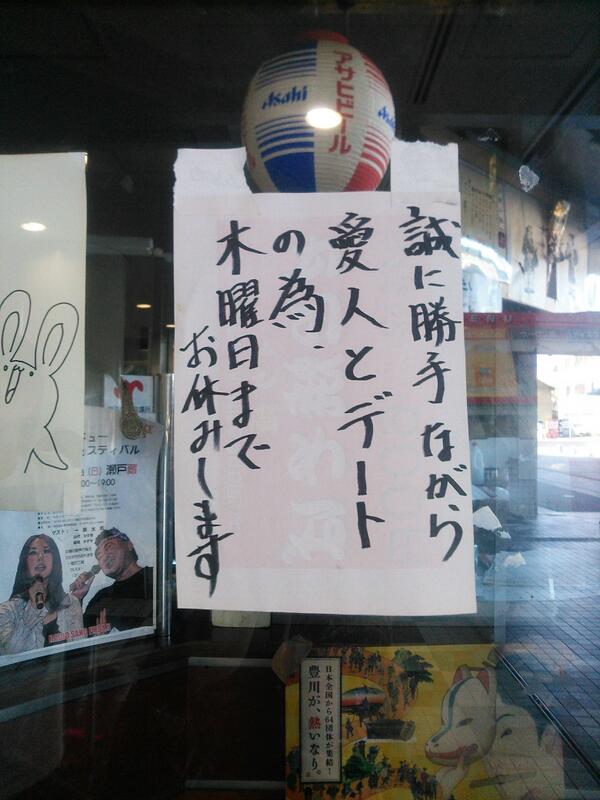 アサヒビール
Asahi
誠に勝手ながら
愛人とデート
の為、
木曜日まで
お休みします
ュー
スティバル
(日) 瀬戸蔵
00〜19:00
日本全国から64団体が集結!
豊川が、熱いなり。